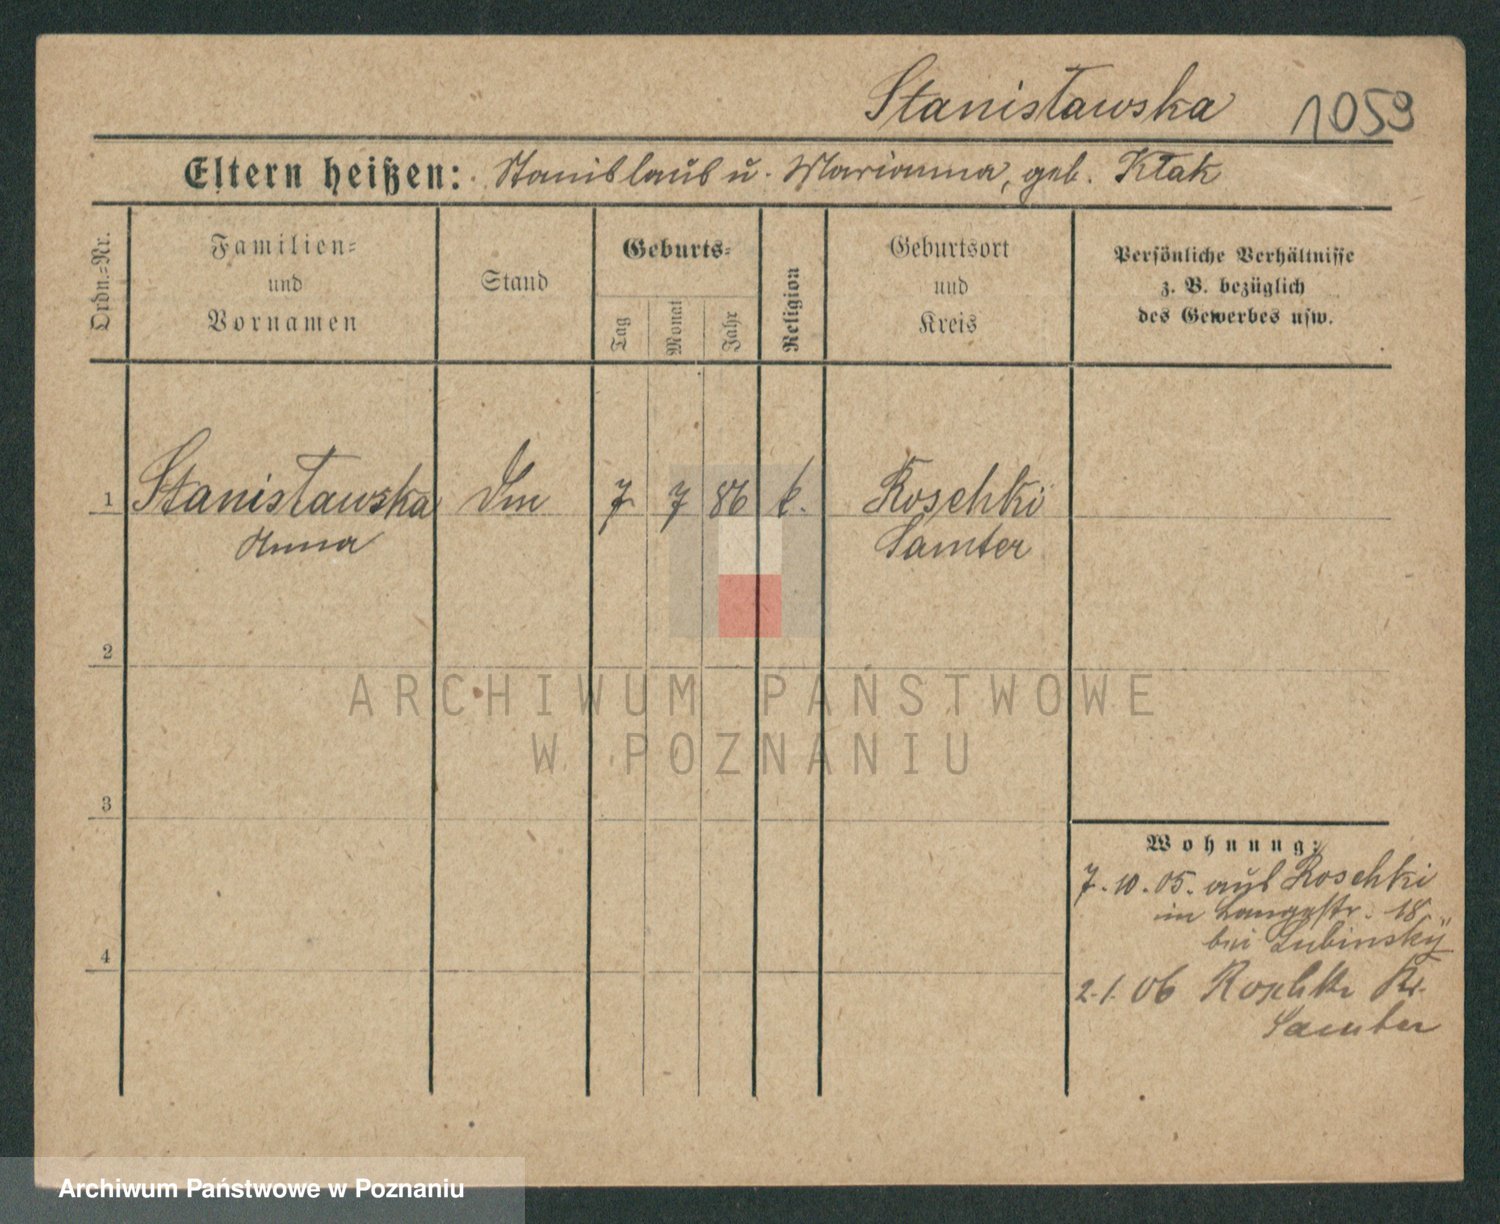 Stanisławska 1059
Eltern heißen: Stanislaus u. Marianna, geb. Kłak
Ordn.-Nr.
Familien-
und
Vornamen
Stand
Geburts-
Tag
Monat
Jahr
Religion
Geburtsort
und
Kreis
Persönliche Verhältnisse
z. B. bezüglich
des Gewerbes usw.
1 Stanisławska 7 7 86 k. Koschki
Anna Samter
2
ARCHIWUM PAŃSTWOWE
W POZNANIU
3
Wohnung:
7.10.05. aus Koschki
in Langestr. 18
bei Lubinsky
4
2.1.06 Koschki Kr.
Samter
Archiwum Państwowe w Poznaniu